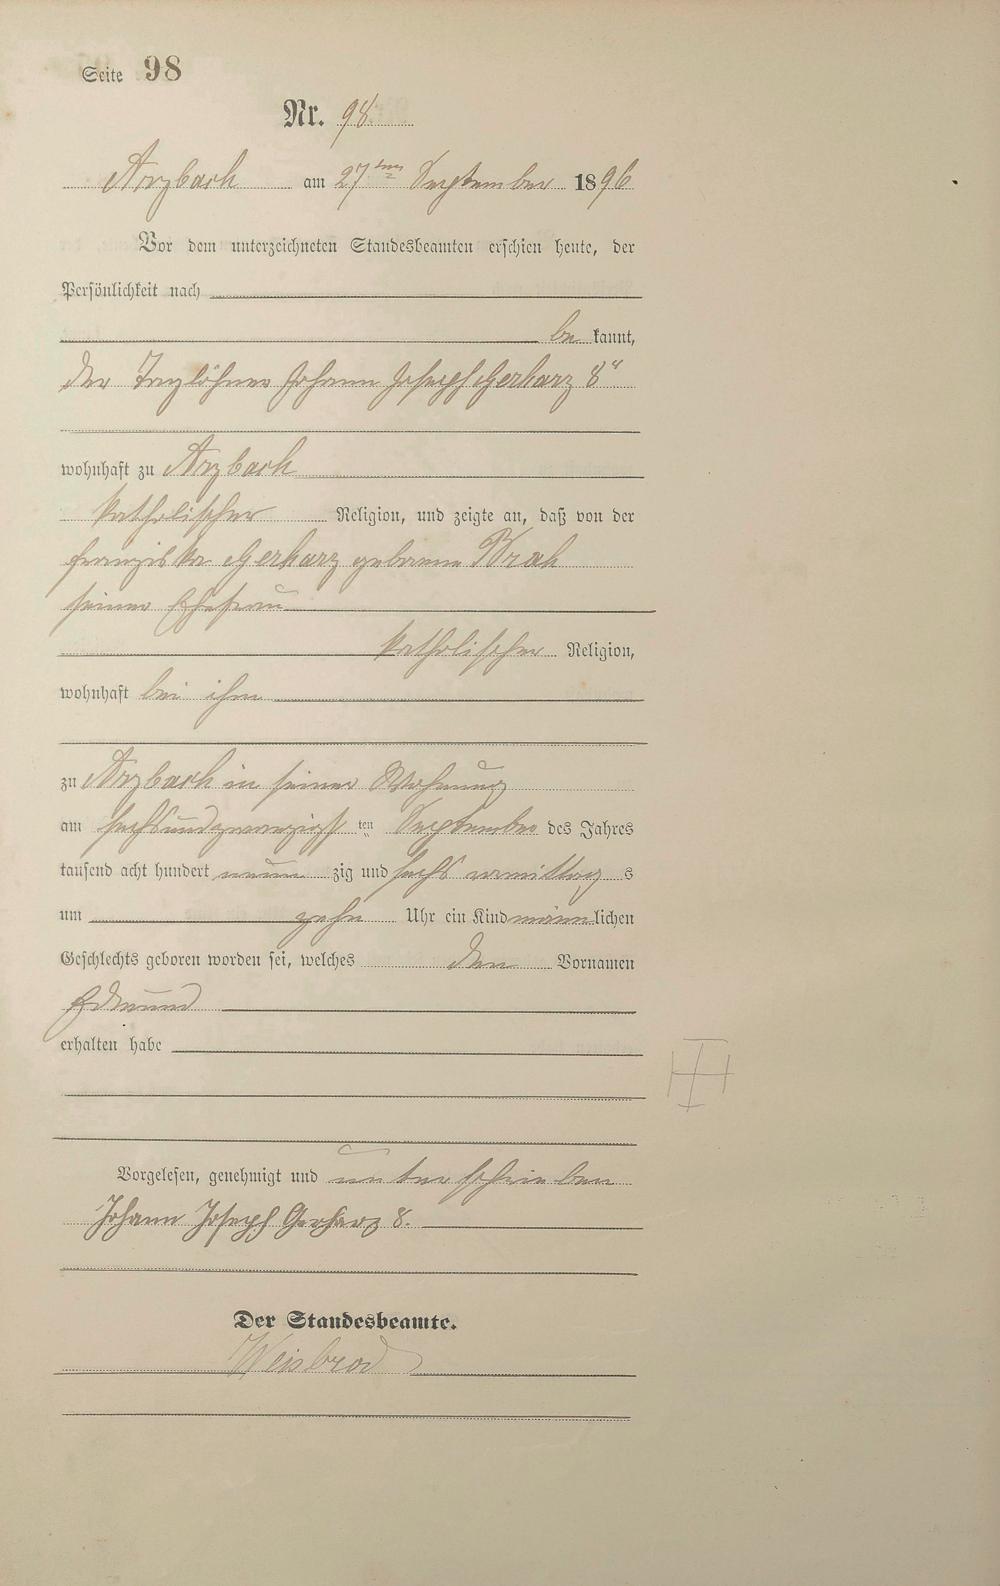 Seite 98
Nr. 98
Arzbach am 27ten September 1896
Vor dem unterzeichneten Standesbeamten erschien heute, der
Persönlichkeit nach
be kannt,
der Taglöhner Johann Joseph Gerharz 8"
wohnhaft zu Arzbach
katholischer Religion, und zeigte an, daß von der
Franziska Gerharz geborene
seiner Ehefrau
katholischer Religion,
wohnhaft bei ihm
zu Arzbach in seiner Wohnung
am sechsundzwanzigsten September des Jahres
tausend acht hundert neun zig und sechs vormittag s
um zehn Uhr ein Kind männlichen
Geschlechts geboren worden sei, welches den Vornamen
Edmund
erhalten habe
Vorgelesen, genehmigt und unterschrieben
Johann Joseph Gerharz 8.
Der Standesbeamte.
Weisbrod